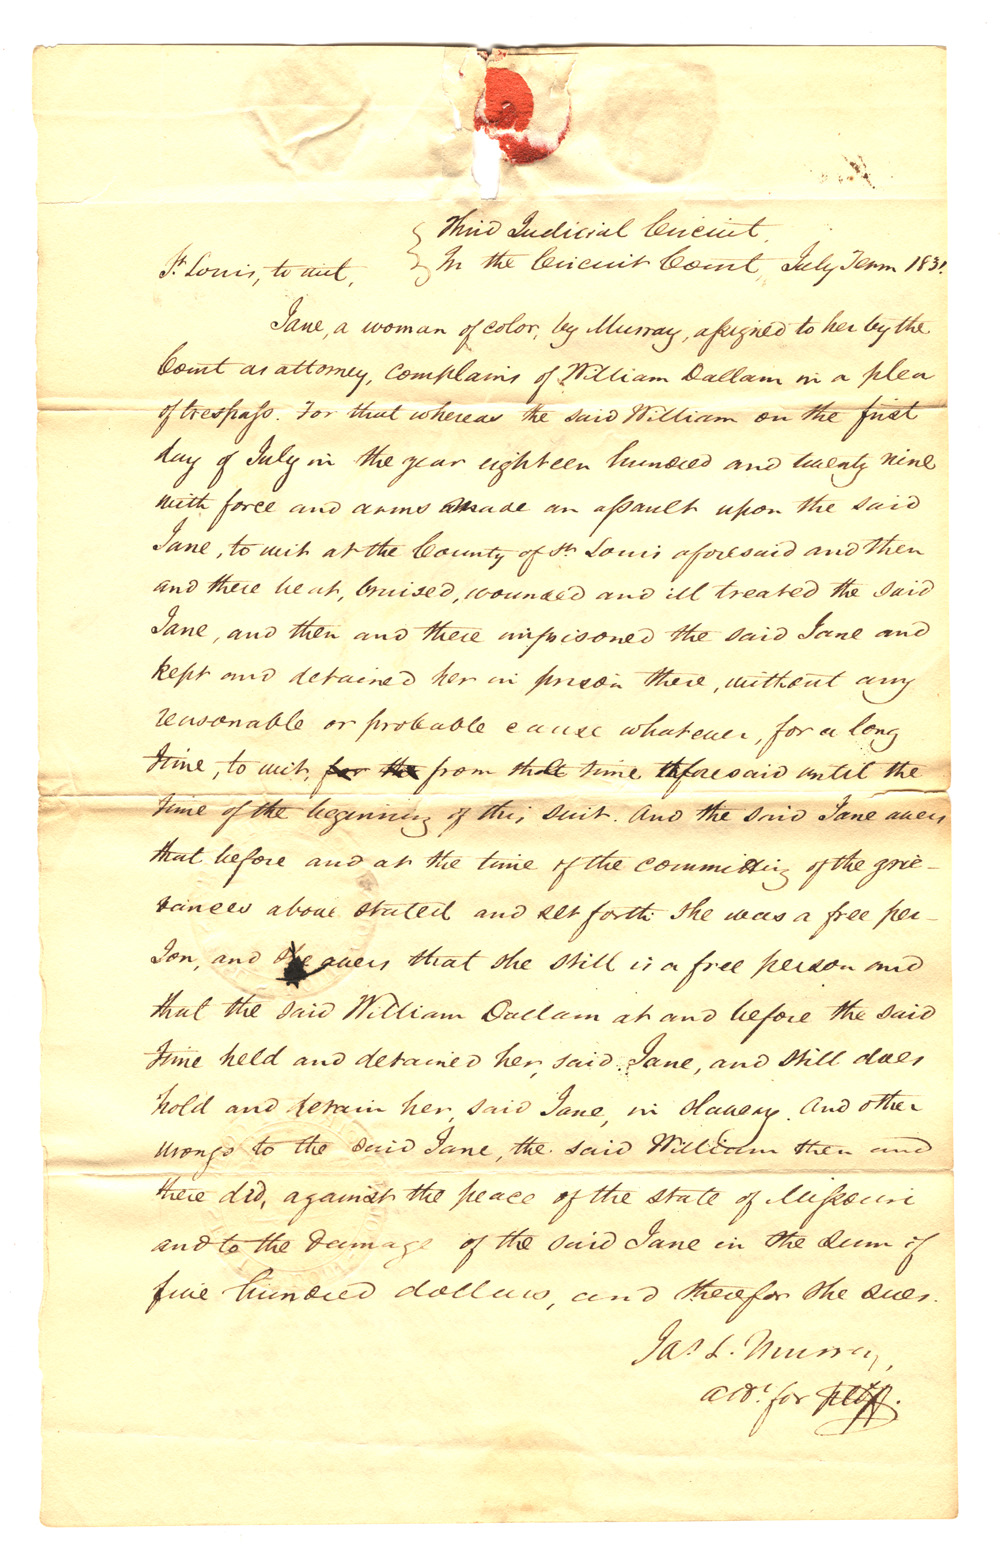 Third Judicial Circuit,
St Louis, to wit, In the Circuit Court, July Term 1831.
Jane, a woman of color, by Murray, assigned to her by the
Court as attorney, complains of William Dallam in a plea
of trespass. For that whereas the said William on the first
day of July in the year eighteen hundred and twenty nine
with force and arms made an assault upon the said
Jane, to wit at the County of St Louis aforesaid and then
and there beat, bruised, wounded and ill treated the said
Jane, and then and there imprisoned the said Jane and
kept and detained her in prison there, without any
reasonable or probable cause whatever, for a long
time, to wit, for the from the time aforesaid until the
time of the beginning of this suit. And the said Jane avers
that before and at the time of the committing of the grie-
vances above stated and set forth she was a free per-
son, and she avers that she still is a free person and
that the said William Dallam at and before the said
time held and detained her, said Jane, and still does
hold and detain her, said Jane, in slavery. And other
wrongs to the said Jane, the said William then and
there did, against the peace of the state of Missouri
and to the damage of the said Jane in the sum of
five hundred dollars, and therefor she sues.
Jas. L. Murray,
atto. for pltff.